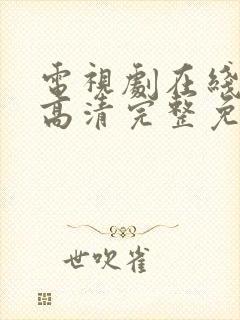 電視劇在綫
高清完整免
世吹雀